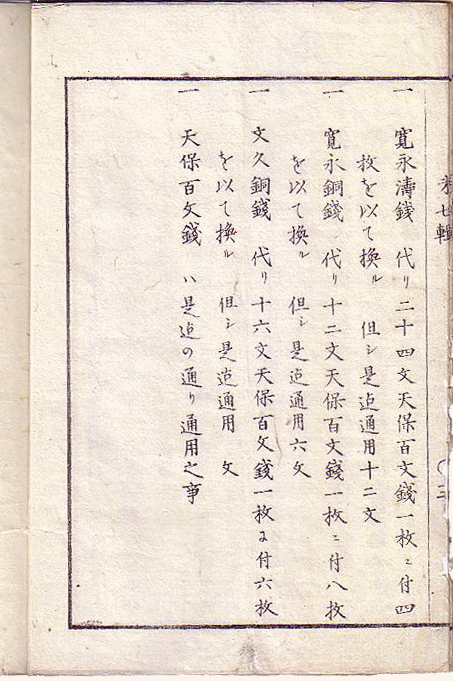 第七輯 (三
一 寛永濤錢 代リ 二十四文天保百文錢一枚ニ付四
枚を以て換ル 但シ是迠通用十二文
一 寛永銅錢 代リ 十二文天保百文錢一枚ニ付八枚
を以て換ル 但シ是迠通用六文
一 文久銅錢 代リ 十六文天保百文錢一枚に付六枚
を以て換ル 但シ是迠通用 文
一 天保百文錢 ハ是迠の通り通用之事